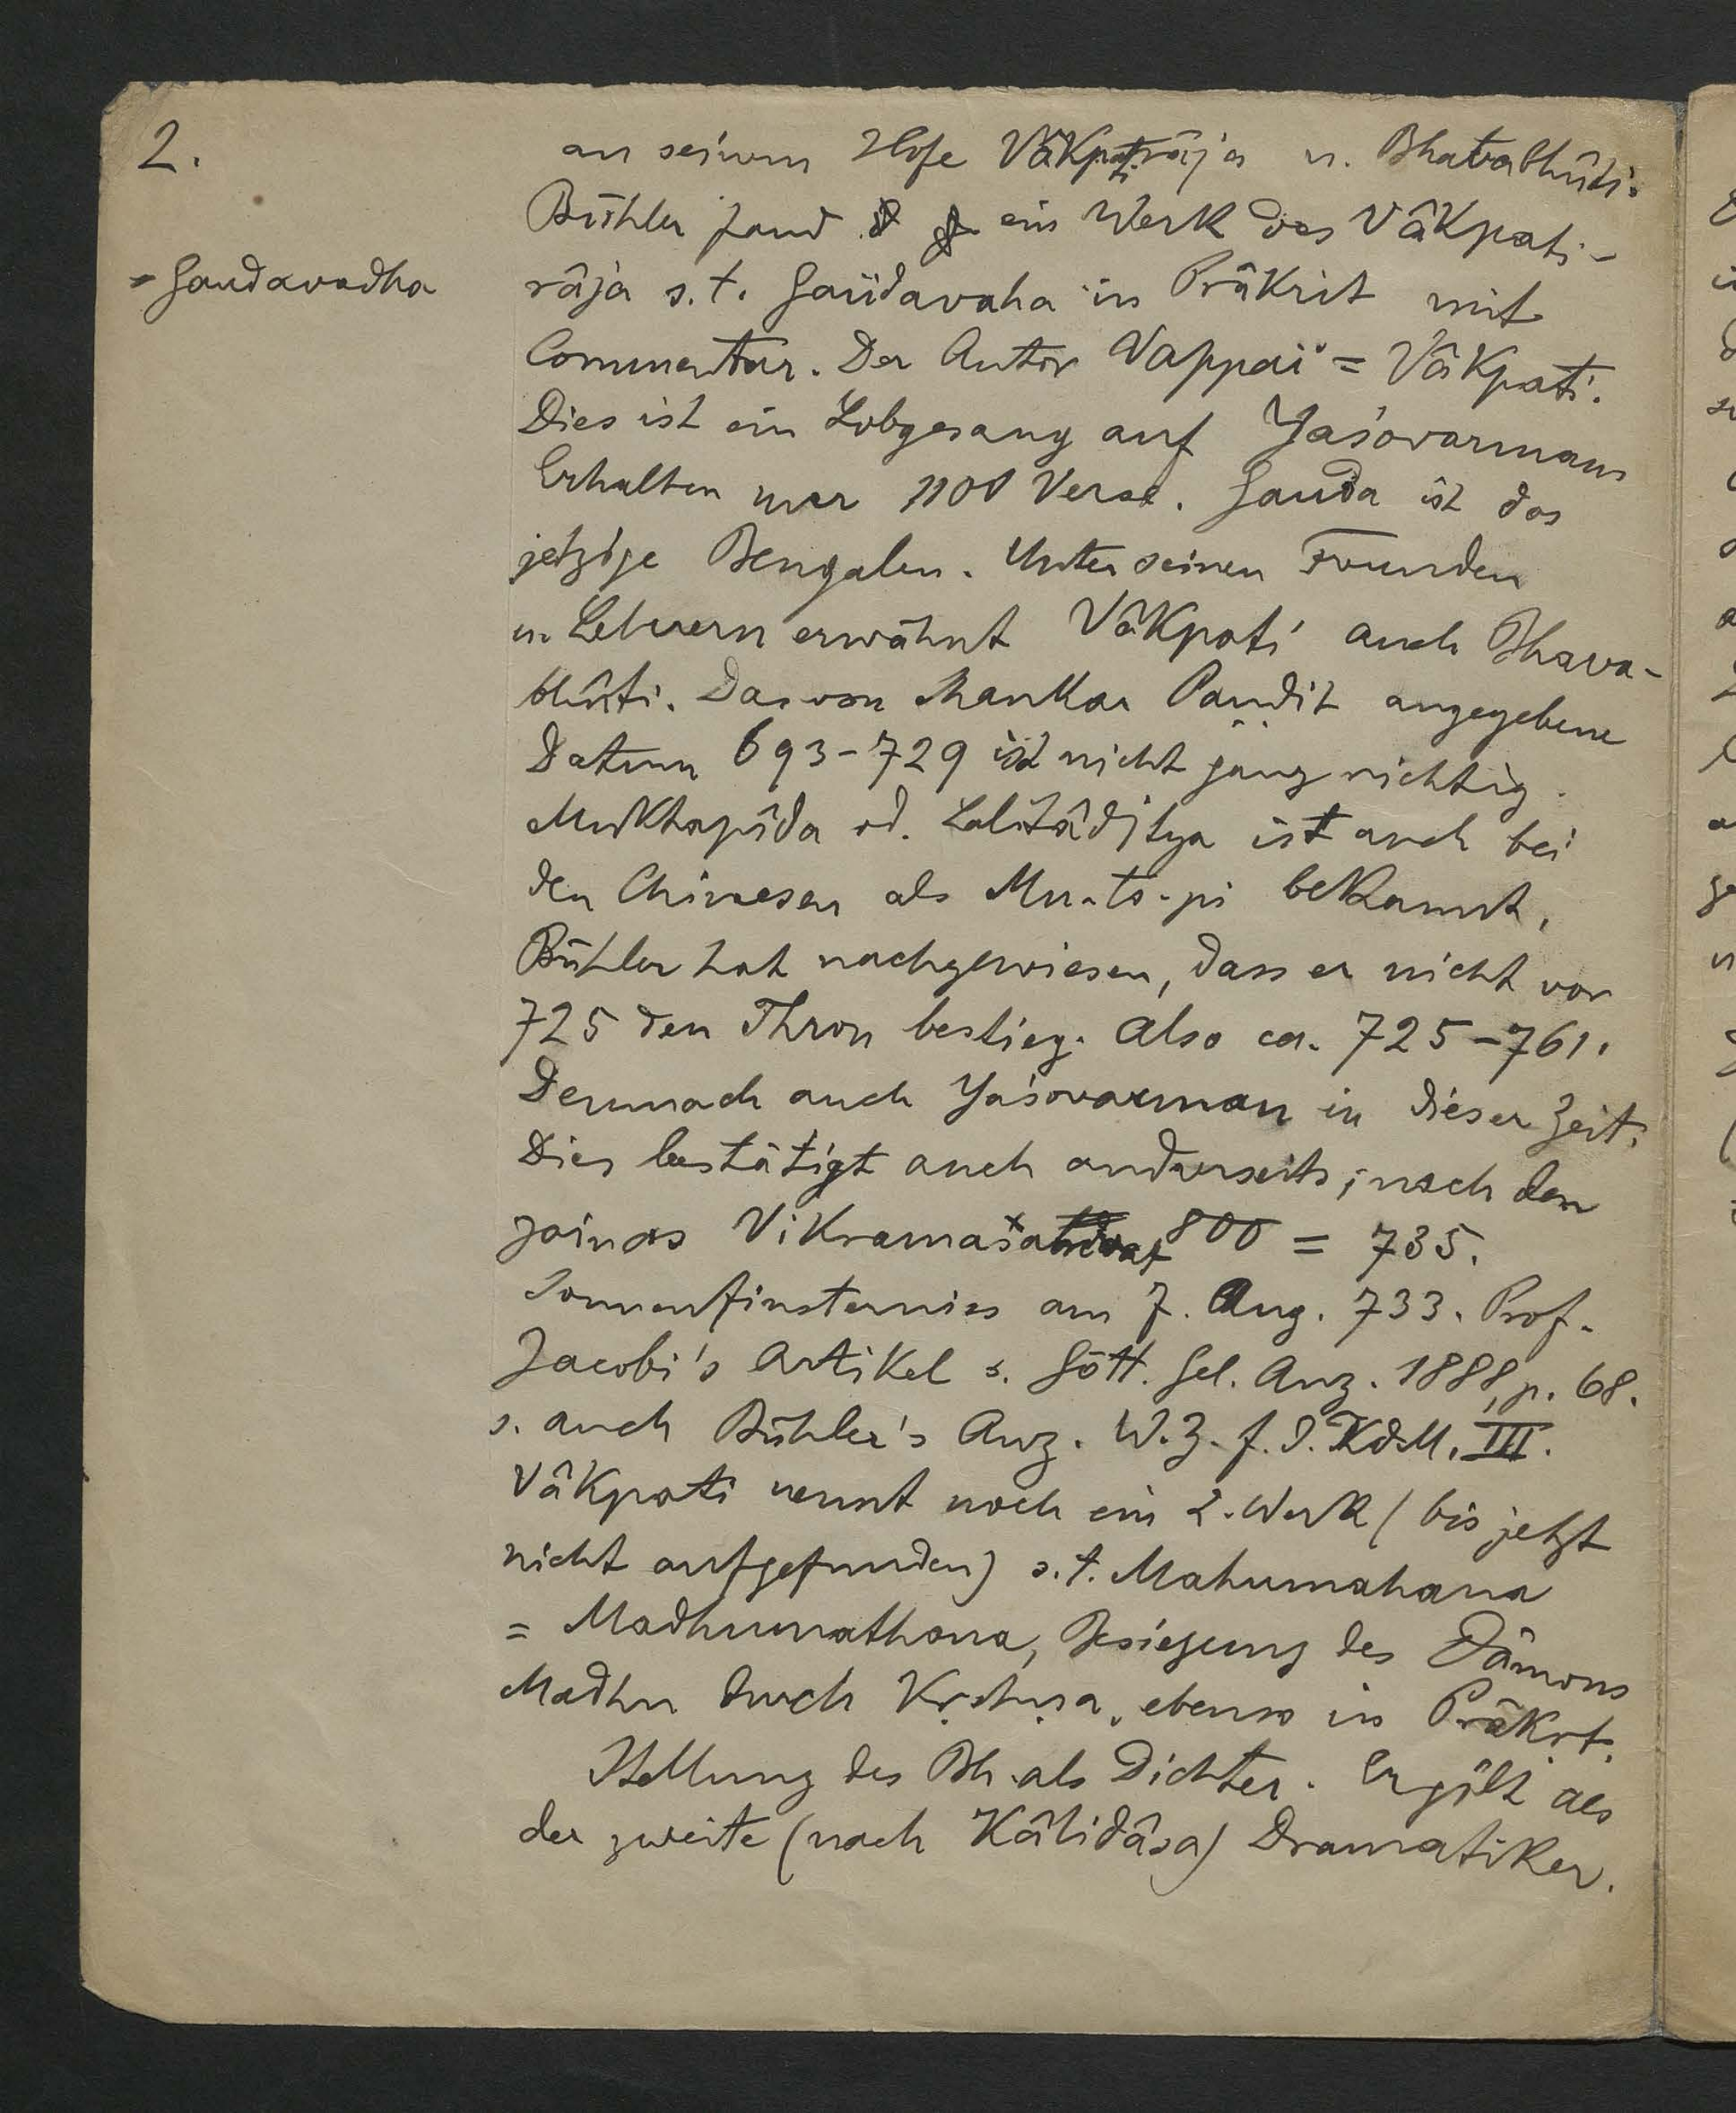 2.
an seinem Hofe Vâkpatirâja u. Bhavabhûti.
Bühler fand ein Werk des Vâkpati-
= Gaudavadha
râja s. t. Gaüdavaha in Prâkrit mit
Commentar. Der Autor Vappai = Vâkpati.
Dies ist ein Lobgesang auf Yaśovarman
Erhalten nur 1100 Verse. Gauda ist das
jetzige Bengalen. Unter seinen Freunden
u. Lehrern erwähnt Vâkpati auch Bhava-
bhûti. Das von Shankar Pandit angegebene
Datum 693-729 ist nicht ganz richtig.
Muktapîda od. Lalitâditya ist auch bei
den Chinesen als Mu-to-pi bekannt.
Bühler hat nachgewiesen, dass er nicht vor
725 den Thron bestieg. Also ca. 725-761.
Demnach auch Yaśovarman in dieser Zeit.
Dies bestätigt auch anderseits; nach den
Jainas Vikrama 800 = 735.
Sonnenfinsterniss am 7. Aug. 733. Prof.
Jacobi's Artikel s. Gött. Gel. Anz. 1888, p. 68.
s. auch Bühler's Anz. W. Z. f. d. KdM. III.
Vâkpati nennt noch ein 2. Werk (bis jetzt
nicht aufgefunden) s. t. Mahumahana
= Madhumathana, Besiegung des Dämons
Madhu durch Kṛshṇa, ebenso in Prâkṛt.
Stellung des Bh. als Dichter. Er gilt als
der zweite (nach Kâlidâsa) Dramatiker.